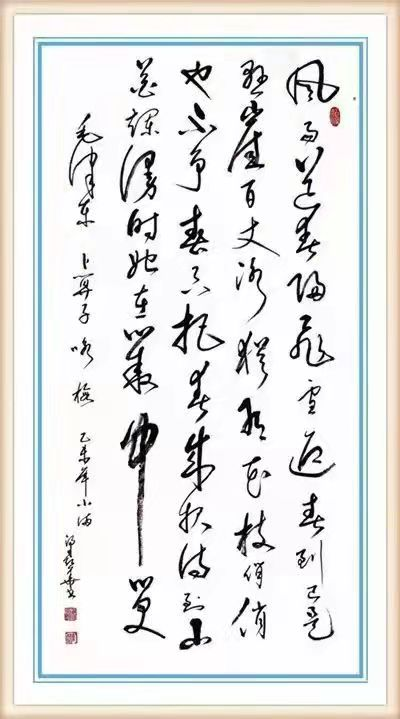 风雨送春归飞雪迎春到已是
悬崖百丈冰犹有花枝俏俏
也不争春只把春来报待到山
花烂漫时她在丛中笑
毛泽东 卜算子 咏梅 乙未年小满